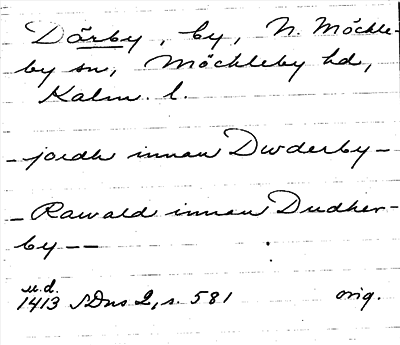 Dörby, by, N. Möckle-
by sn, Möckleby hd,
Kalm. l.
- jordh innan Dwderby -
- Rawald innan Dudher-
by --
u.d.
1413 SDns 2, s. 581 orig.